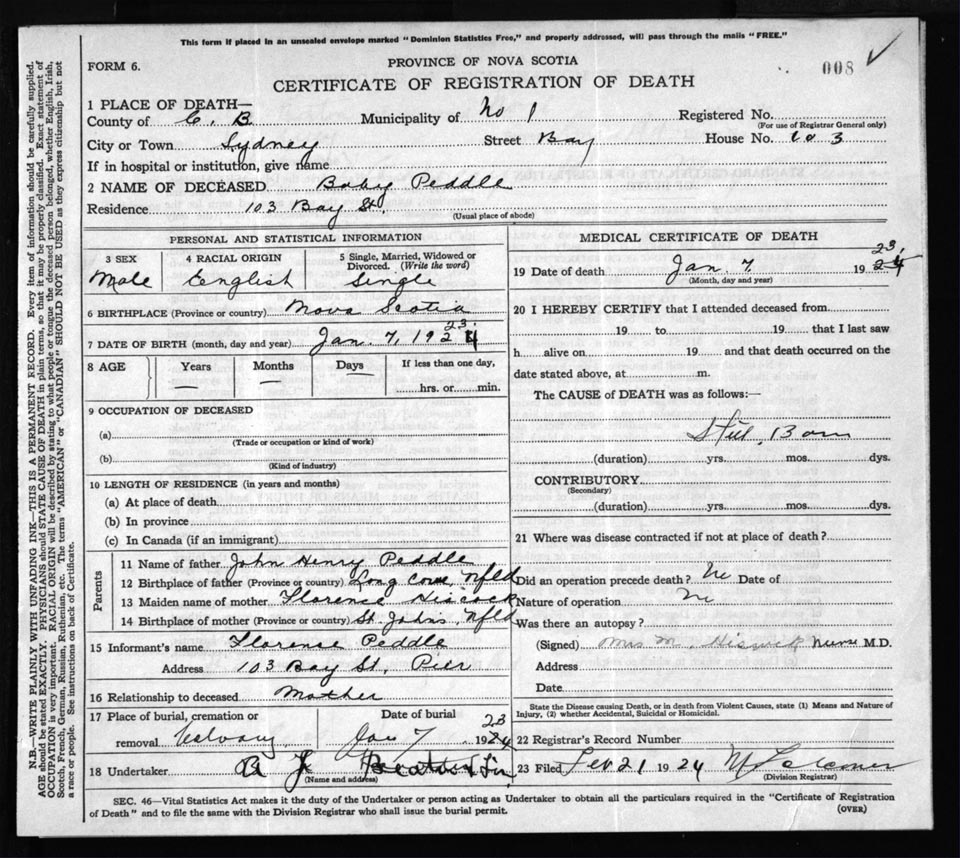 This form if placed in an unsealed envelope marked "Dominion Statistics Free," and properly addressed, will pass through the mails "FREE."
FORM 6.
PROVINCE OF NOVA SCOTIA
008
CERTIFICATE OF REGISTRATION OF DEATH
1 PLACE OF DEATH—
County of C. B Municipality of No 1 Registered No.
(For use of Registrar General only)
City or Town Sydney Street Bay House No. 103
If in hospital or institution, give name
2 NAME OF DECEASED Baby Peddle
Residence 103 Bay St.
(Usual place of abode)
PERSONAL AND STATISTICAL INFORMATION
3 SEX 4 RACIAL ORIGIN 5 Single, Married, Widowed or Divorced. (Write the word)
Male English Single
6 BIRTHPLACE (Province or country) Nova Scotia
7 DATE OF BIRTH (month, day and year) Jan. 7, 1923
8 AGE Years Months Days If less than one day,
— — — hrs. or min.
9 OCCUPATION OF DECEASED
(a)
(Trade or occupation or kind of work)
(b)
(Kind of industry)
10 LENGTH OF RESIDENCE (in years and months)
(a) At place of death
(b) In province
(c) In Canada (if an immigrant)
Parents
11 Name of father John Henry Peddle
12 Birthplace of father (Province or country) Long Cove, Nfld
13 Maiden name of mother Florence Hiscock
14 Birthplace of mother (Province or country) St. John's, Nfld
15 Informant's name Florence Peddle
Address 103 Bay St, Pier
16 Relationship to deceased Mother
17 Place of burial, cremation or Date of burial
removal Calvary Jan 7 1923
18 Undertaker
(Name and address)
MEDICAL CERTIFICATE OF DEATH
19 Date of death Jan. 7 1923
(Month, day and year)
20 I HEREBY CERTIFY that I attended deceased from
19 to 19 that I last saw
h alive on 19 and that death occurred on the
date stated above, at m.
The CAUSE of DEATH was as follows:—
Still Born
(duration) yrs. mos. dys.
CONTRIBUTORY
(Secondary)
(duration) yrs. mos. dys.
21 Where was disease contracted if not at place of death?
Did an operation precede death? No Date of
Nature of operation No
Was there an autopsy?
(Signed) Mrs M. Hiscock Nurse M.D.
Address
Date
State the Disease causing Death, or in death from Violent Causes, state (1) Means and Nature of
Injury, (2) whether Accidental, Suicidal or Homicidal.
22 Registrar's Record Number
23 Filed Feb 21 1924
(Division Registrar)
SEC. 46—Vital Statistics Act makes it the duty of the Undertaker or person acting as Undertaker to obtain all the particulars required in the "Certificate of Registration
of Death" and to file the same with the Division Registrar who shall issue the burial permit.
(OVER)
N.B.—WRITE PLAINLY WITH UNFADING INK—THIS IS A PERMANENT RECORD. Every item of information should be carefully supplied.
AGE should be stated EXACTLY. PHYSICIANS should STATE CAUSE OF DEATH in plain terms, so that it may be properly classified. Exact statement of
OCCUPATION is very important. RACIAL ORIGIN will be described by stating to what people or tongue the deceased person belonged, whether English, Irish,
Scotch, French, German, Russian, Ruthenian, etc. The terms "AMERICAN" or "CANADIAN" SHOULD NOT BE USED as they express citizenship but not
a race or people. See instructions on back of Certificate.